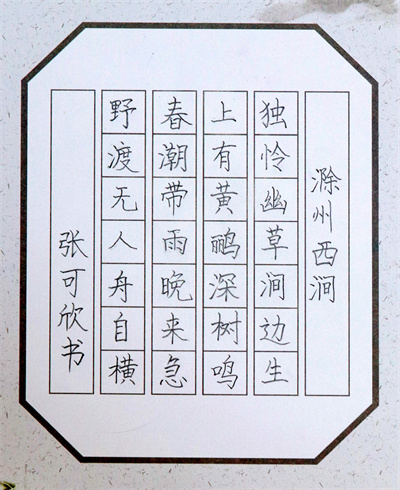 滁州西涧
独怜幽草涧边生
上有黄鹂深树鸣
春潮带雨晚来急
野渡无人舟自横
张可欣书